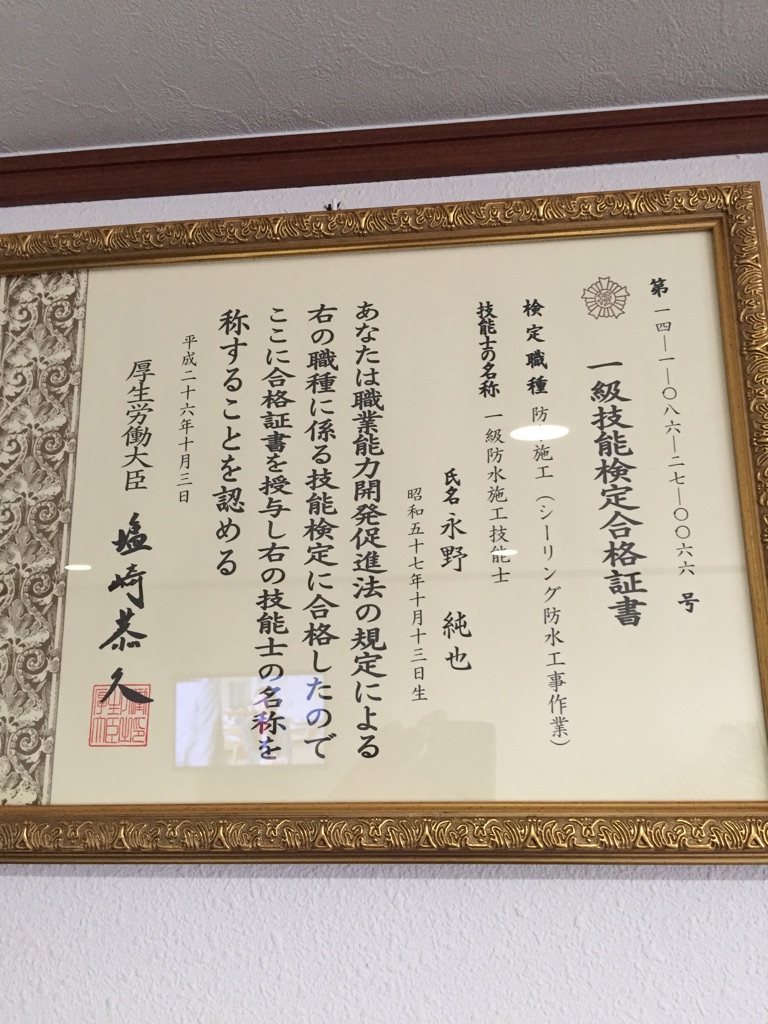 第一四―一―〇八六―二七―〇〇六六号
一級技能検定合格証書
検定職種 防水施工（シーリング防水工事作業）
技能士の名称 一級防水施工技能士
氏名 永野 純也
昭和五十七年十月十三日生
あなたは職業能力開発促進法の規定による
右の職種に係る技能検定に合格したので
ここに合格証書を授与し右の技能士の名称を
称することを認める
平成二十六年十月三日
厚生労働大臣 塩崎恭久